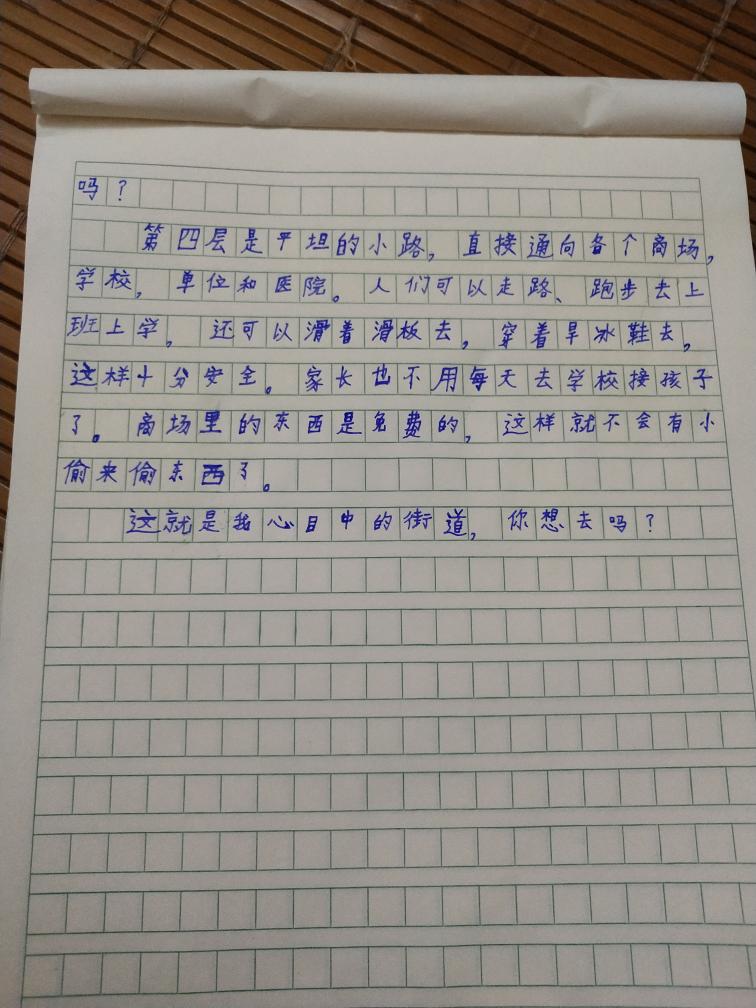 吗？
第四层是平坦的小路，直接通向各个商场，
学校，单位和医院。人们可以走路、跑步去上
班上学，还可以滑着滑板去，穿着旱冰鞋去，
这样十分安全。家长也不用每天去学校接孩子
了。商场里的东西是免费的，这样就不会有小
偷来偷东西了。
这就是我心目中的街道，你想去吗？